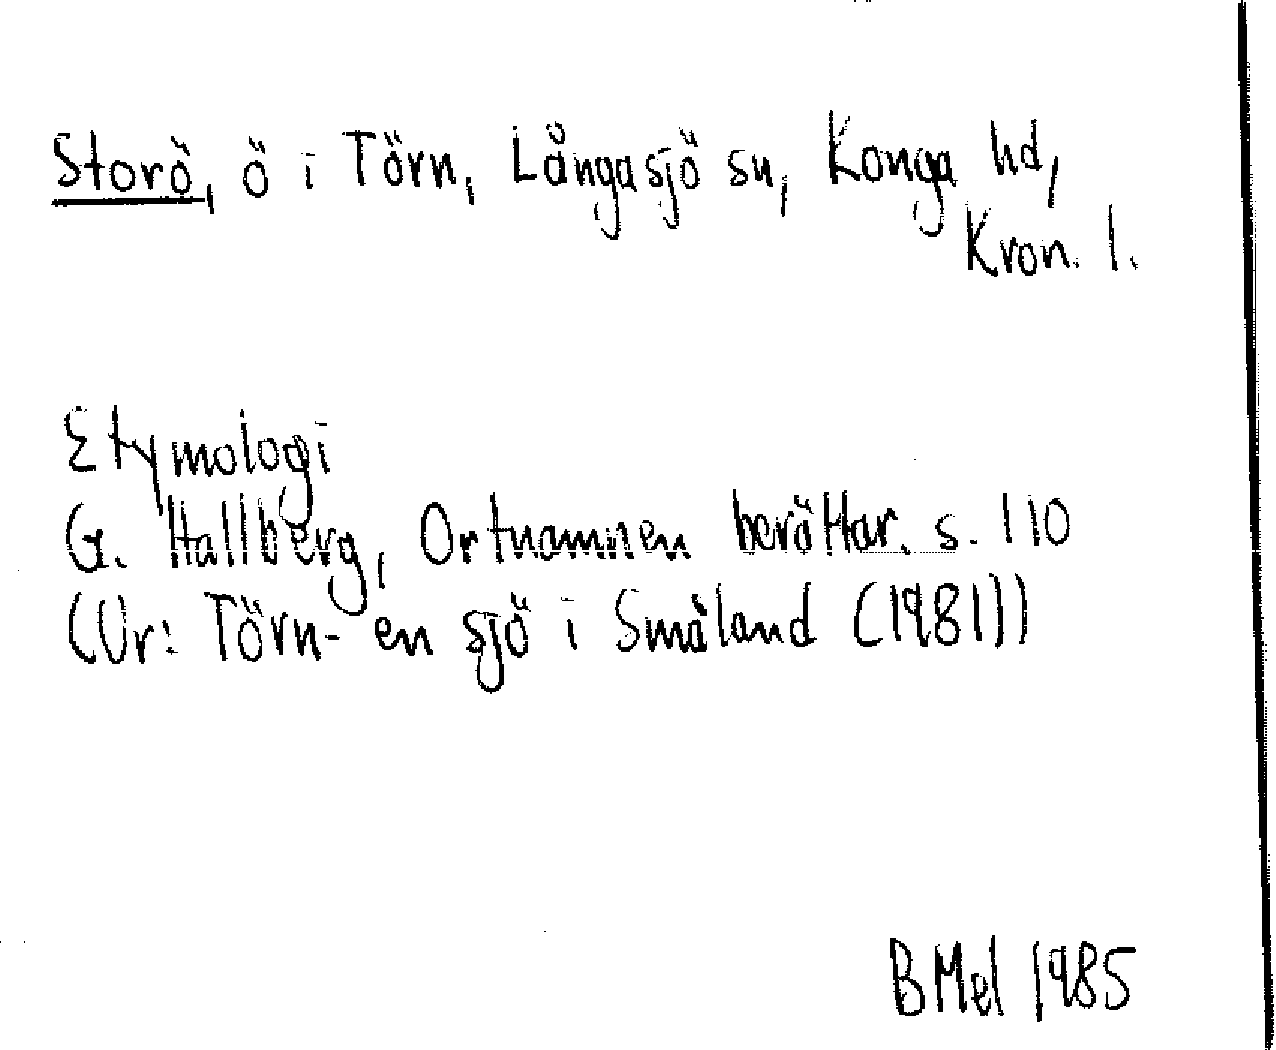 Storö, ö i Törn, Långasjö sn, Konga hd,
Kron. l.
Etymologi
G. Hallberg, Ortnamnen berättar. s. 110
(Ur: Törn- en sjö i Småland (1981))
BMel 1985